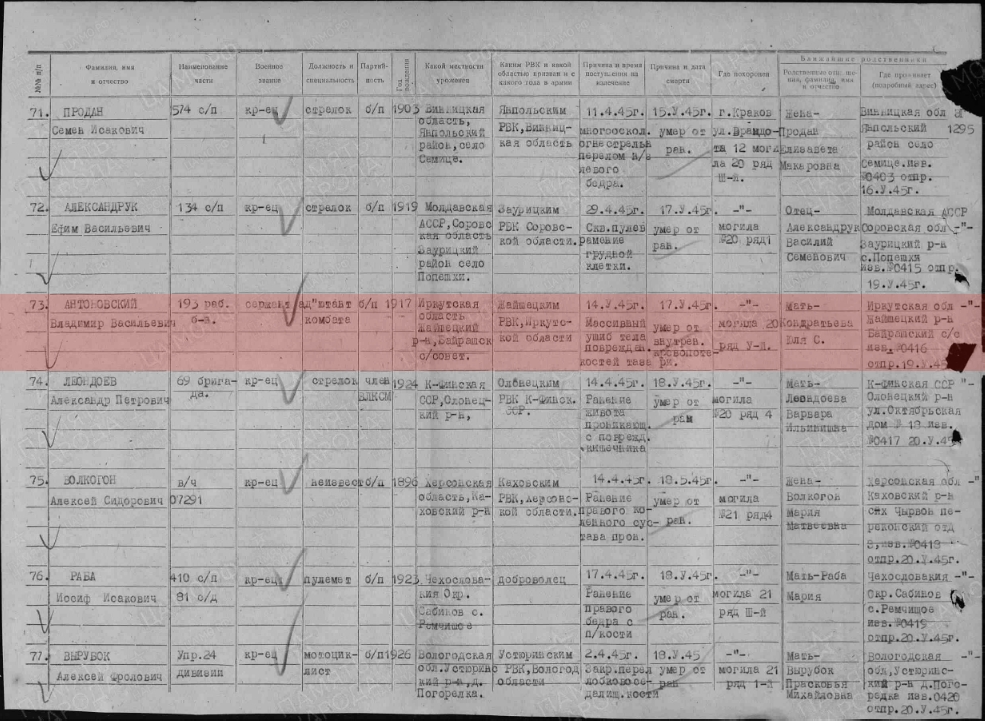 №№ п/п
Фамилия, имя и отчество
Наименование части
Военное звание
Должность и специальность
Партий-ность
Год рождения
Какой местности уроженец
Каким РВК и какой областью призван и с какого года в армии
Причина и время поступления на излечение
Причина и дата смерти
Где похоронен
Ближайшие родственники
Родственные отношения, фамилия, имя и отчество
Где проживает (подробный адрес)
71. ПРОДАН 574 с/п кр-ец стрелок б/п 1903 Винницкая Ямпольским 11.4.45г. 15.У.45г. г.Краков Жена- Винницкая обл
Семен Исакович область, РВК,Винниц- многооскол. умер от Продан Ямпольский 1295
Ямпольский кая область огнестрельн ран. 12 моги Елизавета район село
район,село перелом ла 20 ряд Макаровна Семице.изв.
Семице. левого Ш-й. №0403 отпр.
бедра. 16.У.45г.
72. АЛЕКСАНДРУК 134 с/п кр-ец стрелок б/п 1919 Молдавская Заурицким 29.4.45г. 17.У.45г. -"- Отец- Молдавская АССР
Ефим Васильевич АССР,Соровс РВК Соровс- Скв.пулев умер от могила Александрук Соровская обл -"-
кая область кой области. ранение ран. №20 ряд1 Василий Заурицкий р-н
Заурицкий грудной Семенович с.Попешки
район село клетки. изв.№0415 отпр.
Попешки. 19.У.45г.
73. АНТОНОВСКИЙ 193 раб. сержант ад"ютант б/п 1917 Иркутская 14.У.45г. 17.У.45г. -"- Мать- Иркутская обл -"-
Владимир Васильевич б-н. комбата область РВК,Иркутс- Массивный умер от могила 20 Кондратьева р-н
кой области ушиб тела внутрен. ряд У-й. Юля С. с/с
с/совет. поврежден. изв. №0416
костей таза отпр.19.У.45г.
74. ЛЕОНДОЕВ 69 брига- кр-ец стрелок член 1924 К-Финская Олонецким 14.4.45г. 18.У.45г. -"- Мать- К-Финская ССР -"-
Александр Петрович да. ВЛКСМ ССР,Олонец- РВК К-Финск. Ранение умер от могила Леондоева Олонецкий р-н
кий р-н, ССР. живота ран №20 ряд 4 Варвара ул.Октябрьская
проникающ. Ильинишна дом № 18 изв.
с поврежд. №0417 20.У.45г.
кишечника
75. ВОЛКОГОН в/ч кр-ец неизвест б/п 1896 Херсонская Каховским 14.4.45г. 18.5.45г. -"- Жена- Херсонская обл -"-
Алексей Сидорович 07291 область,Ка- РВК,Херсонс- Ранение умер от могила Волкогон Каховский р-н
ховский р-н кой области. правого ко- ран. №21 ряд4 Мария Чырвон пе-
ленного сус- Матвеевна рекопский отд
тава прон. изв.№0418
отпр.20.У.45г.
76. РАБА 410 с/п кр-ец пулемет б/п 1923 Чехослова- доброволец 17.4.45г. 18.У.45г. -"- Мать-Раба Чехословакия -"-
Иосиф Исакович 81 с/д кия Окр. Ранение умер от могила 21 Мария Окр.Сабинов
Сабинов с. правого ран. ряд Ш-й с.Ремчишое
Ремчишое бедра с изв.№0419
п/кости отпр.20.У.45г.
77. ВЫРУБОК Упр.24 кр-ец мотоцик- б/п 1926 Вологодская Устюринским 2.4.45г. 18.У.45 -"- Мать- Вологодская -"-
Алексей Фролович дивизии лист обл.Устюринс РВК,Вологод Закр.перел умер от могила 21 Вырубок обл,Устюринс-
кий р-н,д. области ран ряд 1-й Прасковья кий р-н д.Пого-
Погорелка. Михайловна релка изв.0420
отпр.20.У.45г.